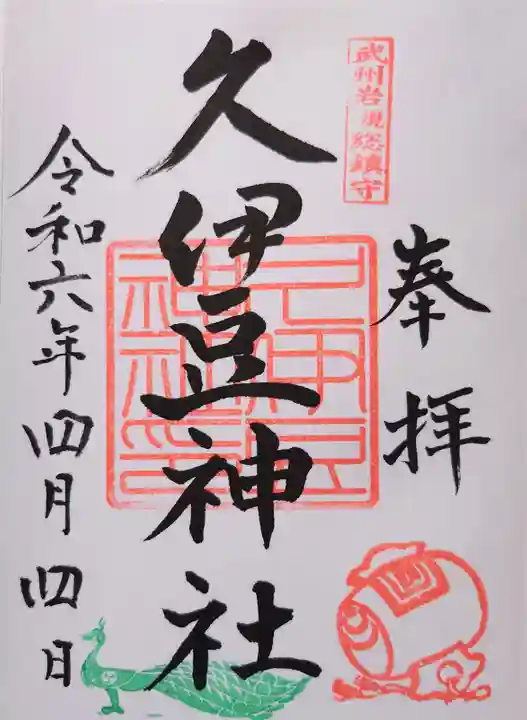 武州岩槻総鎮守
奉拝
久伊豆神社
令和六年四月四日